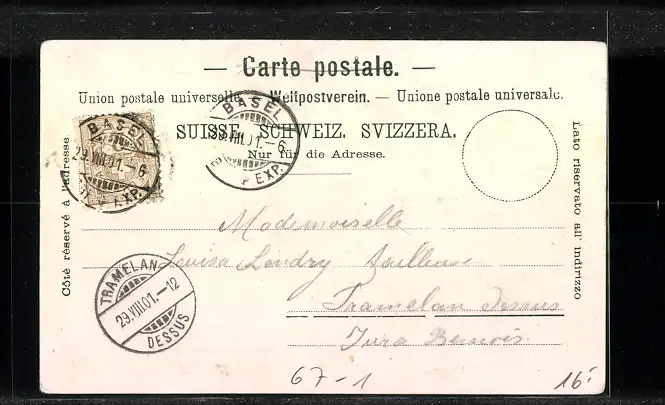 — Carte postale. —
Union postale universelle. — Weltpostverein. — Unione postale universale.
SUISSE. SCHWEIZ. SVIZZERA.
Nur für die Adresse.
Côté réservé à l'adresse.
Lato riservato all' indirizzo
BASEL
29.VIII.01.–6
EXP.
BASEL
29.VIII.01.–6
EXP.
TRAMELAN
29.VIII.01.–12
DESSUS
Mademoiselle
Louisa Landry Tailleuse
Tramelan Dessus
Jura Bernois.
67–1
16.